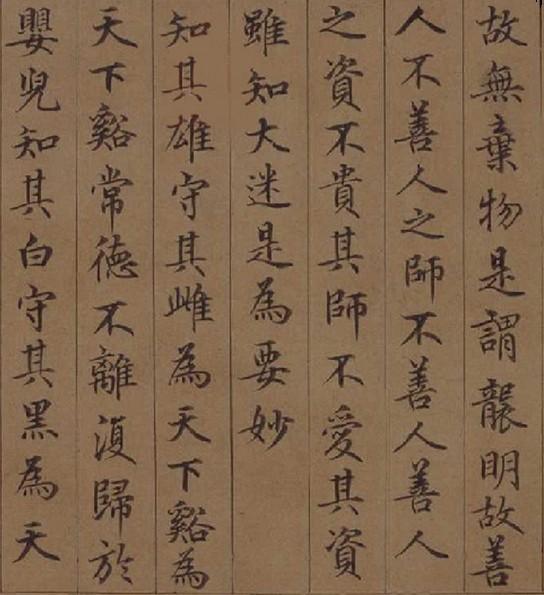 故無棄物是謂襲明故善
人不善人之師不善人善人
之資不貴其師不愛其資
雖知大迷是為要妙
知其雄守其雌為天下谿為
天下谿常德不離復歸於
嬰兒知其白守其黑為天